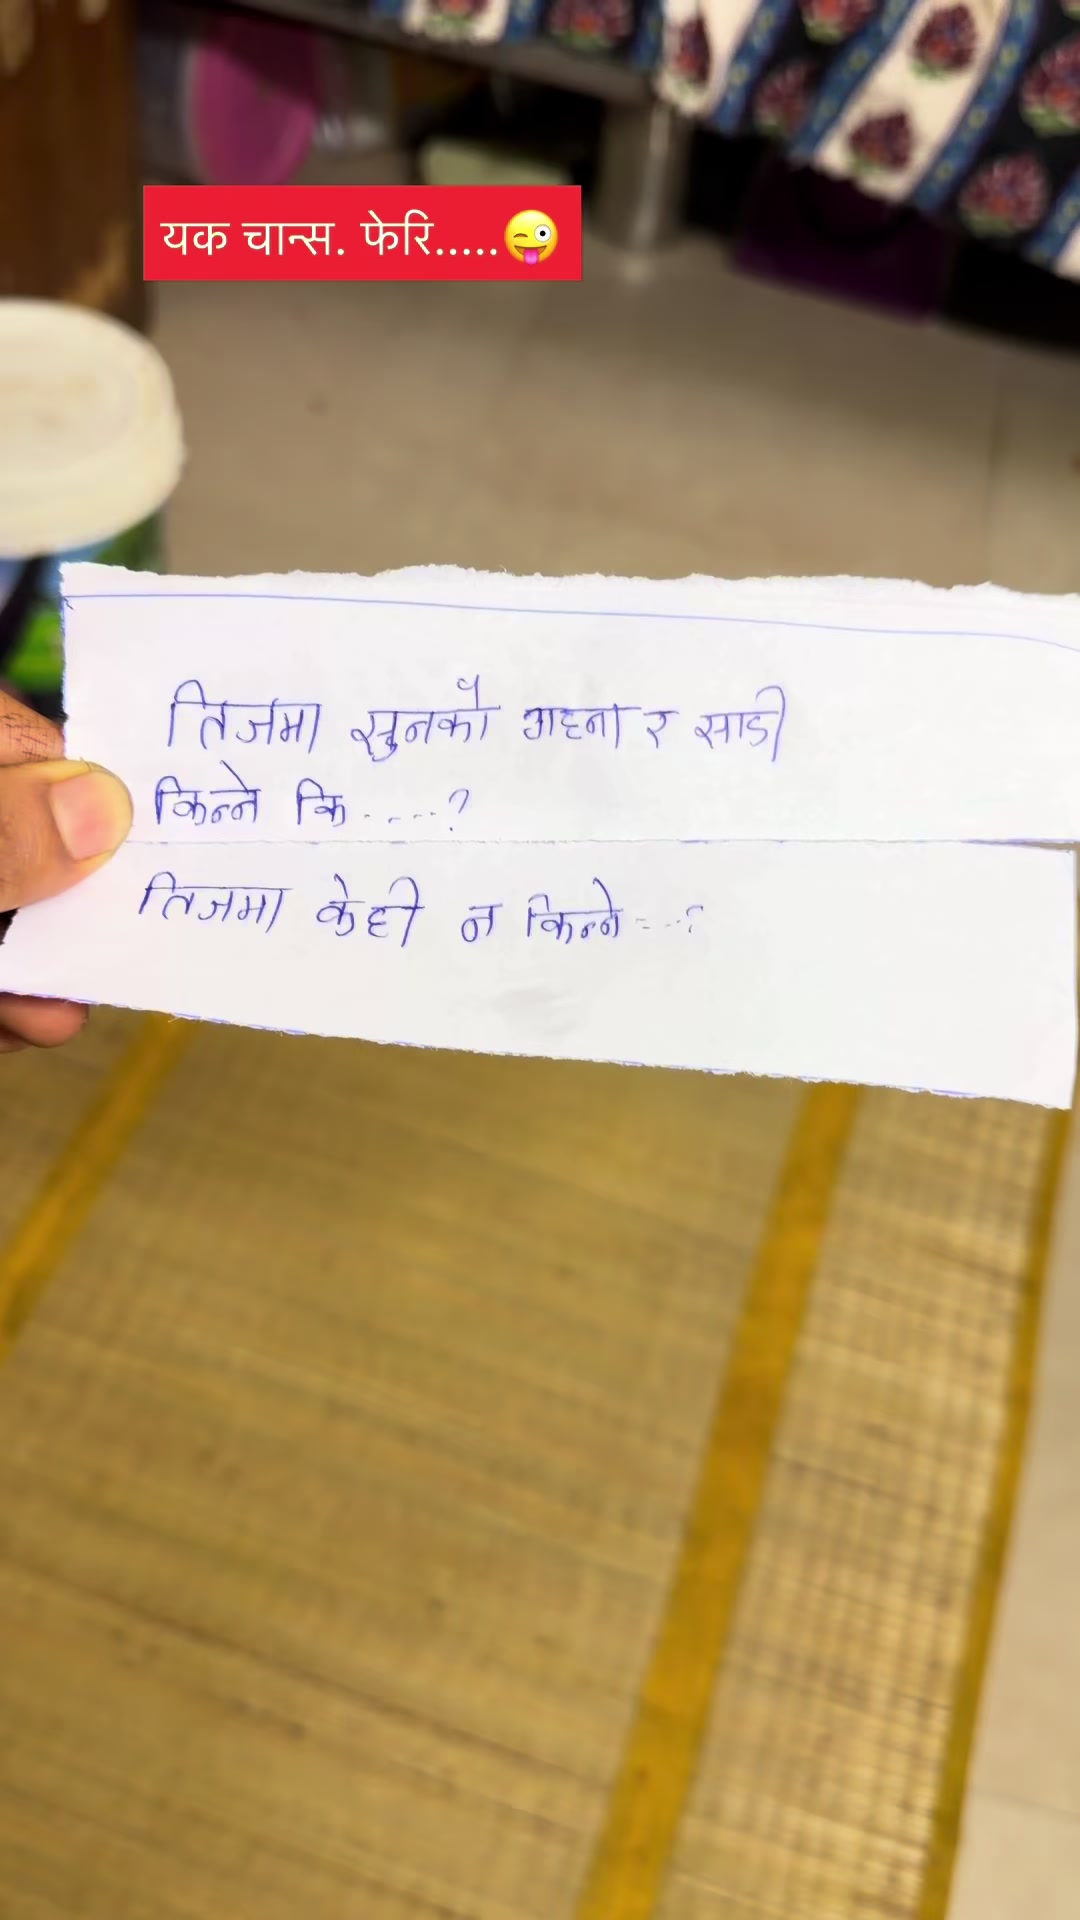 यक चान्स. फेरि.....😜
तिजमा सुनको गहना र साडी
किन्ने कि.....?
तिजमा केही न किन्ने ....?